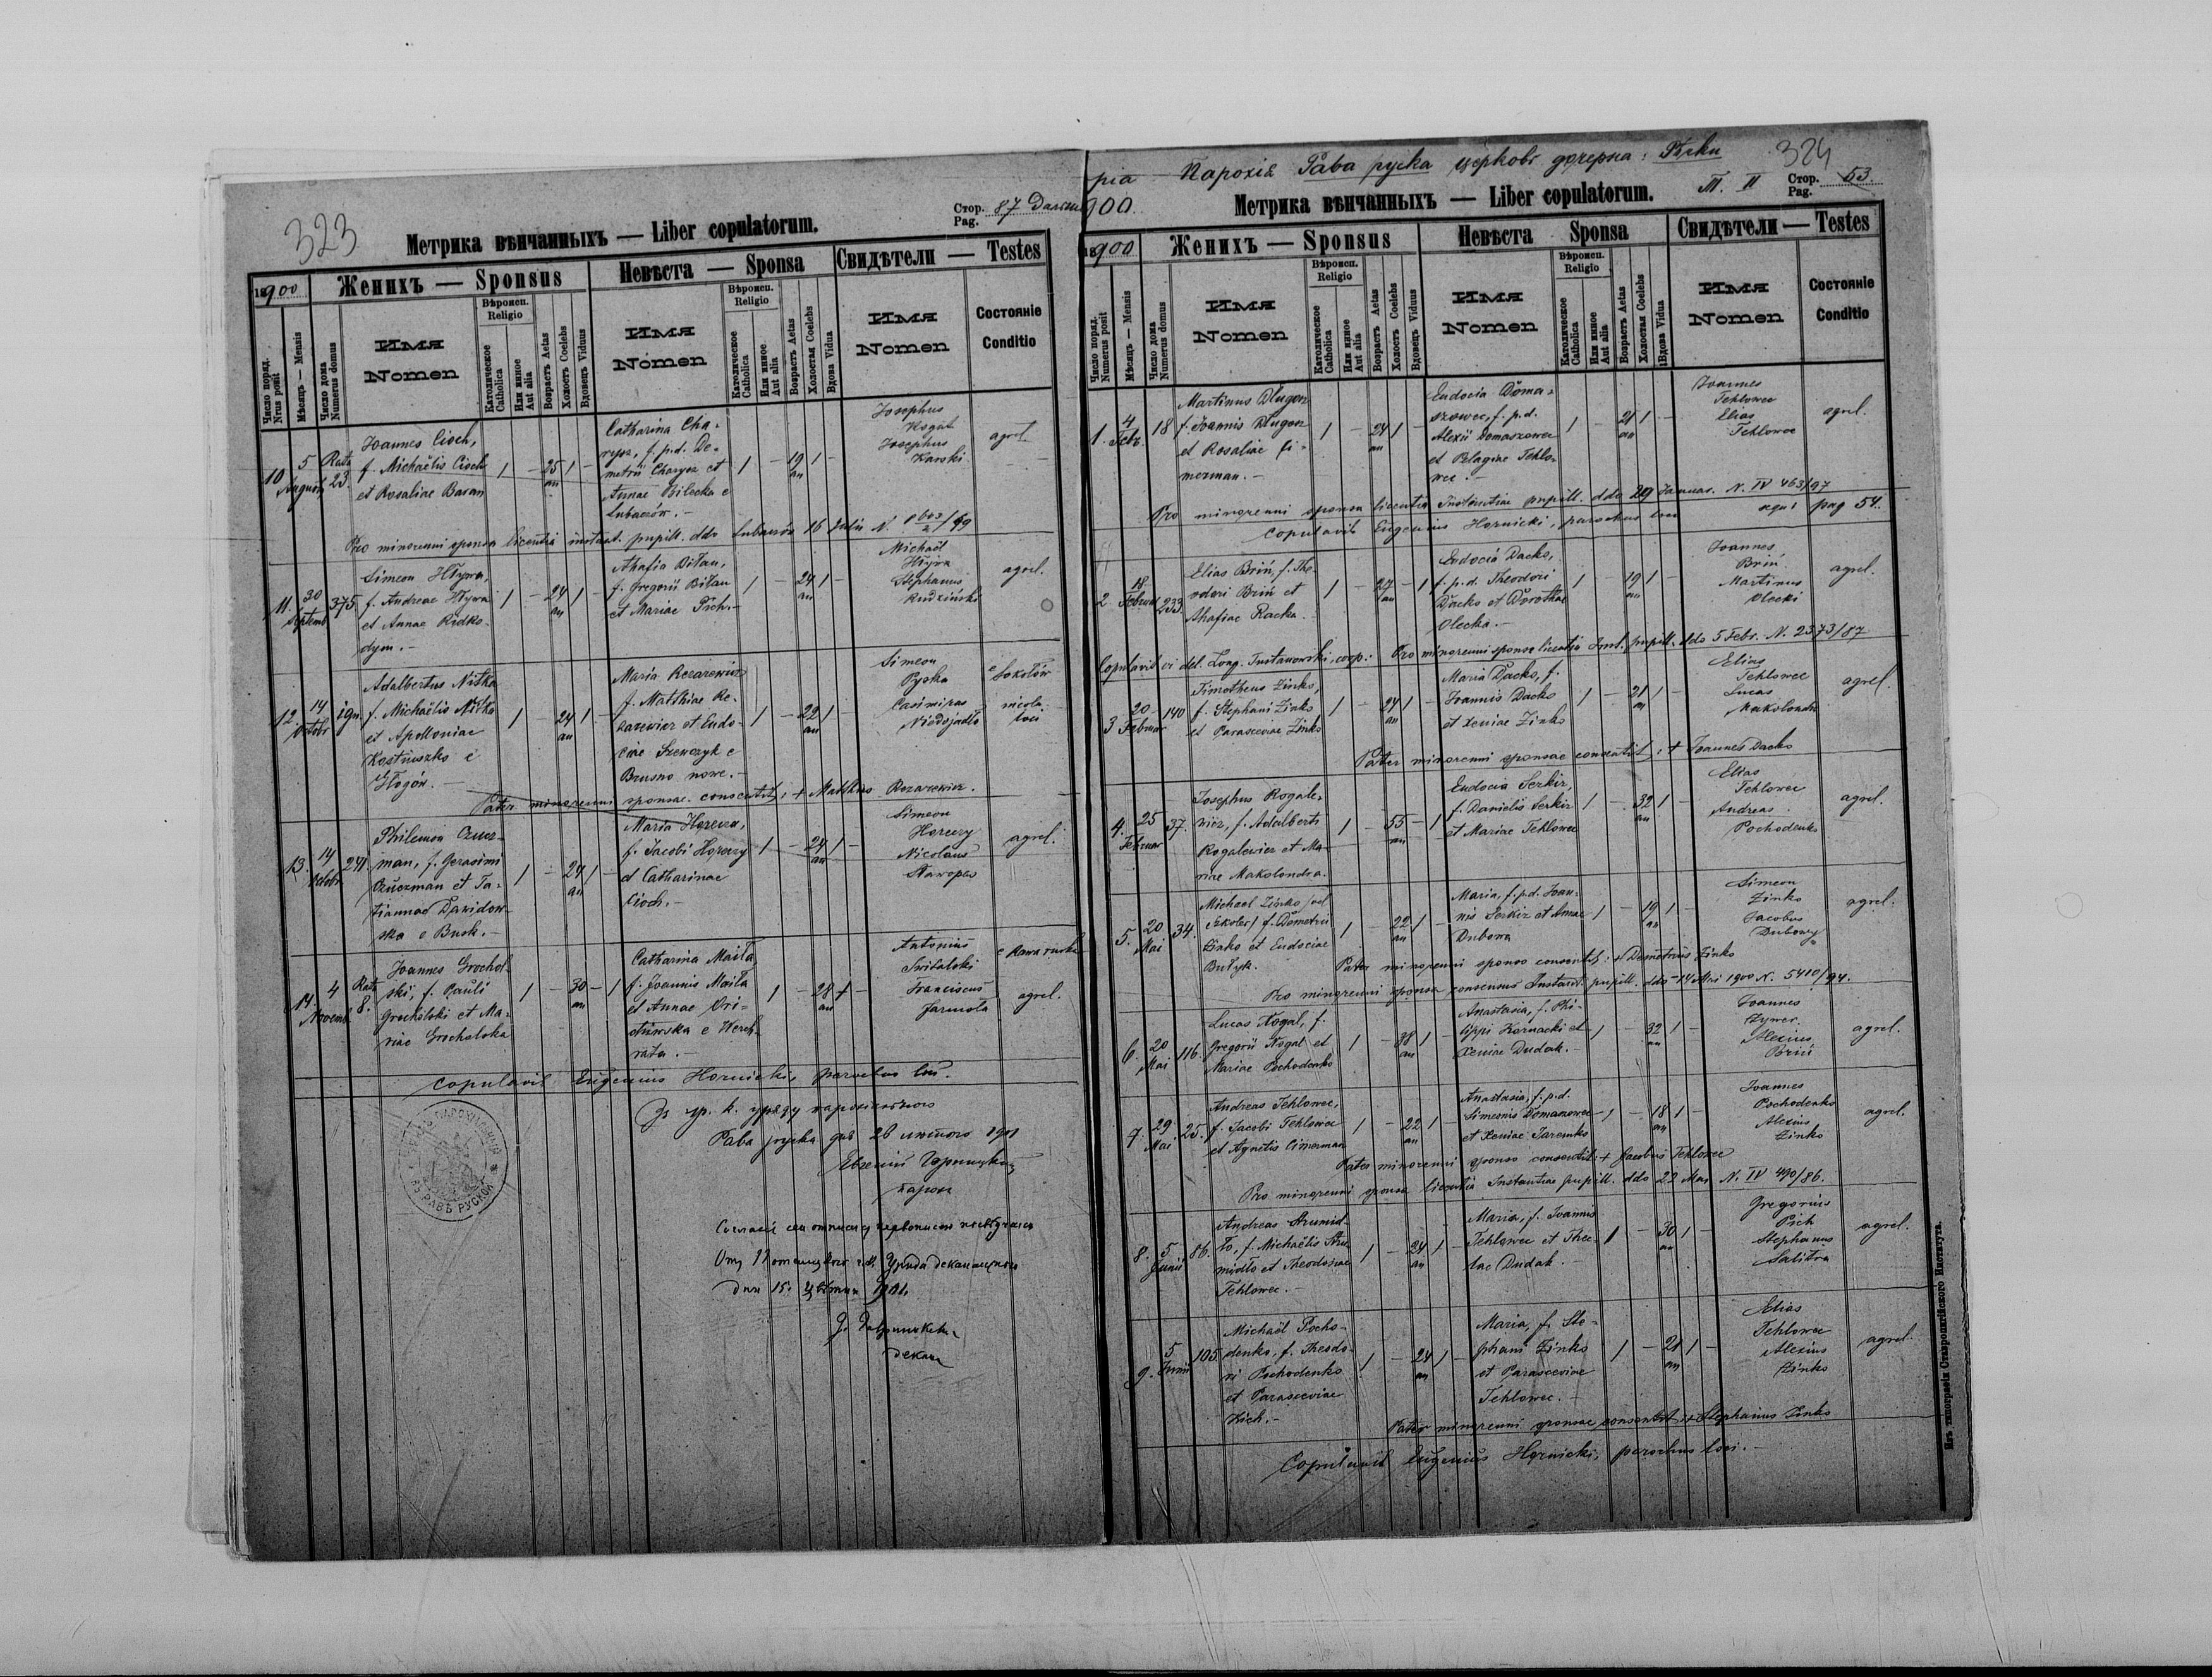 323
Стор. Pag. 87
Метрика вѣнчанныхъ — Liber copulatorum.
1900
Женихъ — Sponsus
Невѣста — Sponsa
Свидѣтели — Testes
Число поряд. Nrus posit
Мѣсяцъ — Mensis
Число дома Numerus domus
Имя Nomen
Вѣроисп. Religio
Католическое Catholica
Или иное Aut alia
Возрастъ Aetas
Холостъ Coelebs
Вдовецъ Viduus
Имя Nomen
Вѣроисп. Religio
Католическое Catholica
Или иное Aut alia
Возрастъ Aetas
Холостая Coelebs
Вдова Vidua
Имя Nomen
Состояніе Conditio
10
5 August
Rata 23.
Joannes Cioch,
f. Michaëlis Cioch
et Rosaliae Baran
1 – 25 an 1 –
Catharina Cha-
rysz, f. p. d. De-
metrii Charysz et
Annae Bilecka e
Lubaczów. –
1 – 19 an 1 –
Josephus
Kogut
Josephus
Karski
agrel.
Pro minorenni sponsa licentia instant. pupill. ddo Lubaczów 16 Julii N.
11.
30 Septemb
375
Simeon Hływa,
f. Andreae Hływa
et Annae Ridko-
dym. –
1 – 24 an 1 –
Ahafia Biłan,
f. Gregorii Biłan
et Mariae Pich. –
1 – 24 an 1 –
Michaël
Hływa
Stephanus
Rudziński
agrel.
12.
14 Octobr
ign.
Adalbertus Nitka
f. Michaëlis Nitka
et Apolloniae
Kostiuszko e
Głogów. –
1 24 an 1 –
Maria Rezarewicz
f. Matthiae Re-
zarewicz et Eudo-
ciae Szewczyk e
Brusno nowe. –
1 – 22 an 1 –
Simeon
Pyska
Casimirus
Niedojadło
e Sokołów
incola
loci
Pater minorenni sponsae consentit: + Matthias Rezarewicz.
13.
14 Octobr
241.
Philemon Czucz-
man, f. Gerasimi
Czuczman et Ta-
tiannae Dawidow-
ska e Busk. –
1 – 24 an 1 –
Maria Horeczy,
f. Jacobi Horeczy
et Catharinae
Cioch. –
1 – 24 an 1 –
Simeon
Horeczy
Nicolaus
agrel.
14.
4 Novemb.
Rata 8.
Joannes Grochol-
ski, f. Pauli
Grocholski et Ma-
riae Grocholska
1 – 30 an – 1
Catharina Maiła,
f. Joannis Maiła
et Annae
e Werch-
rata. –
1 – 28 an 1 –
Antonius
Franciscus
Jarmoła
e Rawa ruska
agrel.
copulavit Eugenius Hornicki, parochus loci.
Зъ гр. к. уряду парохіяльного
Рава руска дня 26 лютого 1901
Евгеній Горницкій
парох
дня 15. цвѣтня 1901.
декан
Парохія Рава руска церковь дочерна:
324
Метрика вѣнчанныхъ — Liber copulatorum.
Т. II
Стор. Pag. 53.
1900
Женихъ — Sponsus
Невѣста Sponsa
Свидѣтели — Testes
Число поряд. Numerus posit
Мѣсяцъ — Mensis
Число дома Numerus domus
Имя Nomen
Вѣроисп. Religio
Католическое Catholica
Или иное Aut alia
Возрастъ Aetas
Холостъ Coelebs
Вдовецъ Viduus
Имя Nomen
Вѣроисп. Religio
Католическое Catholica
Или иное Aut alia
Возрастъ Aetas
Холостая Coelebs
Вдова Vidua
Имя Nomen
Состояніе Conditio
1.
4 Febr.
18
Martinus Długon
f. Joannis Długon
et Rosaliae Ci-
merman. –
1 – 24 an 1 –
Eudocia Doma-
szowec, f. p. d.
Alexii Domaszowec
et Pelagiae Tehlo-
wec. –
1 – 21 an 1 –
Joannes
Tehlowec
Elias
Tehlowec
agrel.
Pro minorenni sponsa licentia Instantiae pupill. ddo 29 Januar. N. IV 463/97
copulavit Eugenius Hornicki, parochus loci
pag 54.
2
18 Februar
233
Elias Briń, f. The-
odori Briń et
Ahafiae Racka. –
1 – 27 an – 1
Eudocia Dacko,
f. p. d. Theodori
Dacko et Dorotheae
Olecka. –
1 – 19 an 1 –
Joannes
Briń
Martinus
Olecki
agrel.
Copulavit ex del. Long. Tustanowski, coop: Pro minorenni sponsa licentia Inst. pupill. ddo 5 Febr. N. 2373/87
3
20 Februar
140
Timotheus Zinko,
f. Stephani Zinko
et Parasceviae Zinko
1 – 24 an 1 –
Maria Dacko, f.
Joannis Dacko
et Xeniae Zinko
1 – 21 an 1 –
Elias
Tehlowec
Lucas
Makolondra
agrel.
Pater minorenni sponsae consentit: + Joannes Dacko
4.
25 Februar
37.
Josephus Rogale-
wicz, f. Adalberti
Rogalewicz et Ma-
riae Makolondra.
1 – 55 an – 1
Eudocia Serkiz,
f. Danielis Serkiz
et Mariae Tehlowec
1 – 32 an 1 –
Elias
Tehlowec
Andreas
Pochodenko
agrel.
5.
20 Mai
34.
Michael Zinko (vel
f. Demetrii
Zinko et Eudociae
1 – 22 an 1 –
Maria, f. p. d. Joan-
nis Serkiz et Annae
Dubowa
1 – 19 an 1 –
Simeon
Zinko
Jacobus
Dubowy
agrel.
Pater minorenni sponso consentit: + Demetrius Zinko
Pro minorenni sponsa consensus Instant. pupill. ddo 14 Mai 1900 N. 5410/94.
6.
20 Mai
116.
Lucas Nogal, f.
Gregorii Nogal et
Mariae Pochodenko
1 – 38 an 1 –
Anastasia, f. Phi-
lippi Kornacki et
Xeniae Dudak. –
1 – 32 an 1 –
Joannes
Alexius
Briń
agrel.
7.
29 Mai
25.
Andreas Tehlowec,
f. Jacobi Tehlowec
et Agnetis Cimerman
1 – 22 an 1 –
Anastasia, f. p. d.
Simeonis
et Xeniae Jaremko
1 – 18 an 1 –
Joannes
Pochodenko
Alexius
Zinko
agrel.
Pater minorenni sponso consentit: + Jacobus Tehlowec
Pro minorenni sponsa licentia Instantiae pupill. ddo 22 Mai N. IV 490/86.
8.
5 Junii
86.
Andreas Strumid-
ło, f. Michaëlis Stru-
midło et Theodosiae
Tehlowec. –
1 – 24 an 1 –
Maria, f. Joannis
Tehlowec et Thec-
lae Dudak. –
1 – 30 an 1 –
Gregorius
Pich
Stephanus
Salitra
agrel.
9.
5 Junii
105.
Michaël Pocho-
denko, f. Theodo-
ri Pochodenko
et Parasceviae
Hich. –
1 – 24 an 1 –
Maria, f. Ste-
phani Zinko
et Parasceviae
Tehlowec. –
1 – 21 an 1 –
Elias
Tehlowec
Alexius
Zinko
agrel.
Pater minorenni sponsae consentit: + Stephanus Zinko
Copulavit Eugenius Hornicki, parochus loci. –
Изъ типографіи Ставропигійского Института.